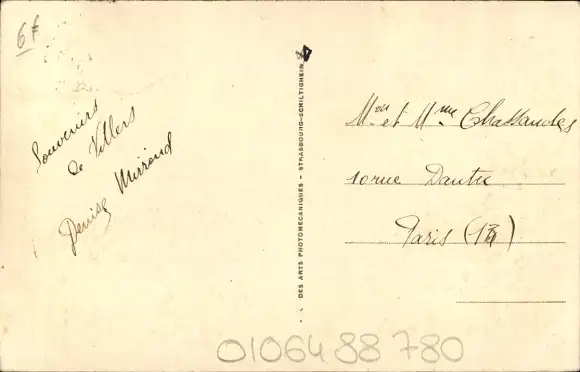 6f
Souvenirs
de Villers
Denise Mirroud
DES ARTS PHOTOMECANIQUES - STRASBOURG-SCHILTIGHEIM
Mon et Mme Chassandes
10 rue Dantu
Paris (13)
0106488780